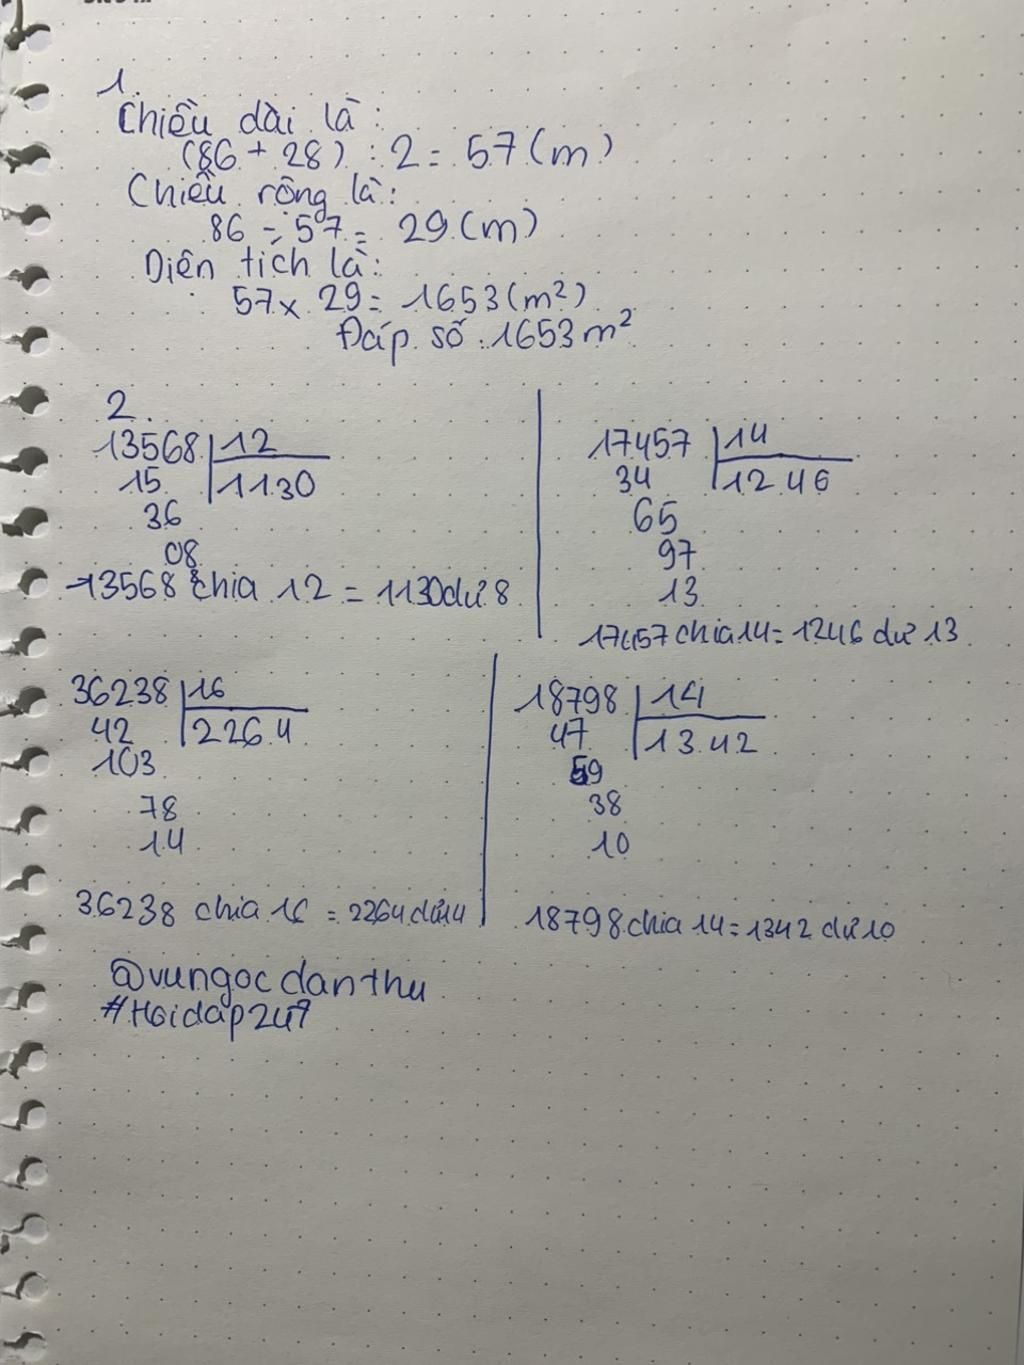 1.
Chiều dài là:
(86 + 28) : 2 = 57 (m)
Chiều rộng là:
86 - 57 = 29 (m)
Diện tích là:
57 x 29 = 1653 (m²)
Đáp số : 1653 m²
2.
13568 12
15 1130
36
08
13568 chia 12 = 1130 dư 8
17457 14
34 1246
65
97
13
17457 chia 14 = 1246 dư 13
36238 16
42 2264
103
78
14
36238 chia 16 = 2264 dư 14
18798 14
47 1342
59
38
10
18798 chia 14 = 1342 dư 10
@vungocdanthu
#Hoidap247